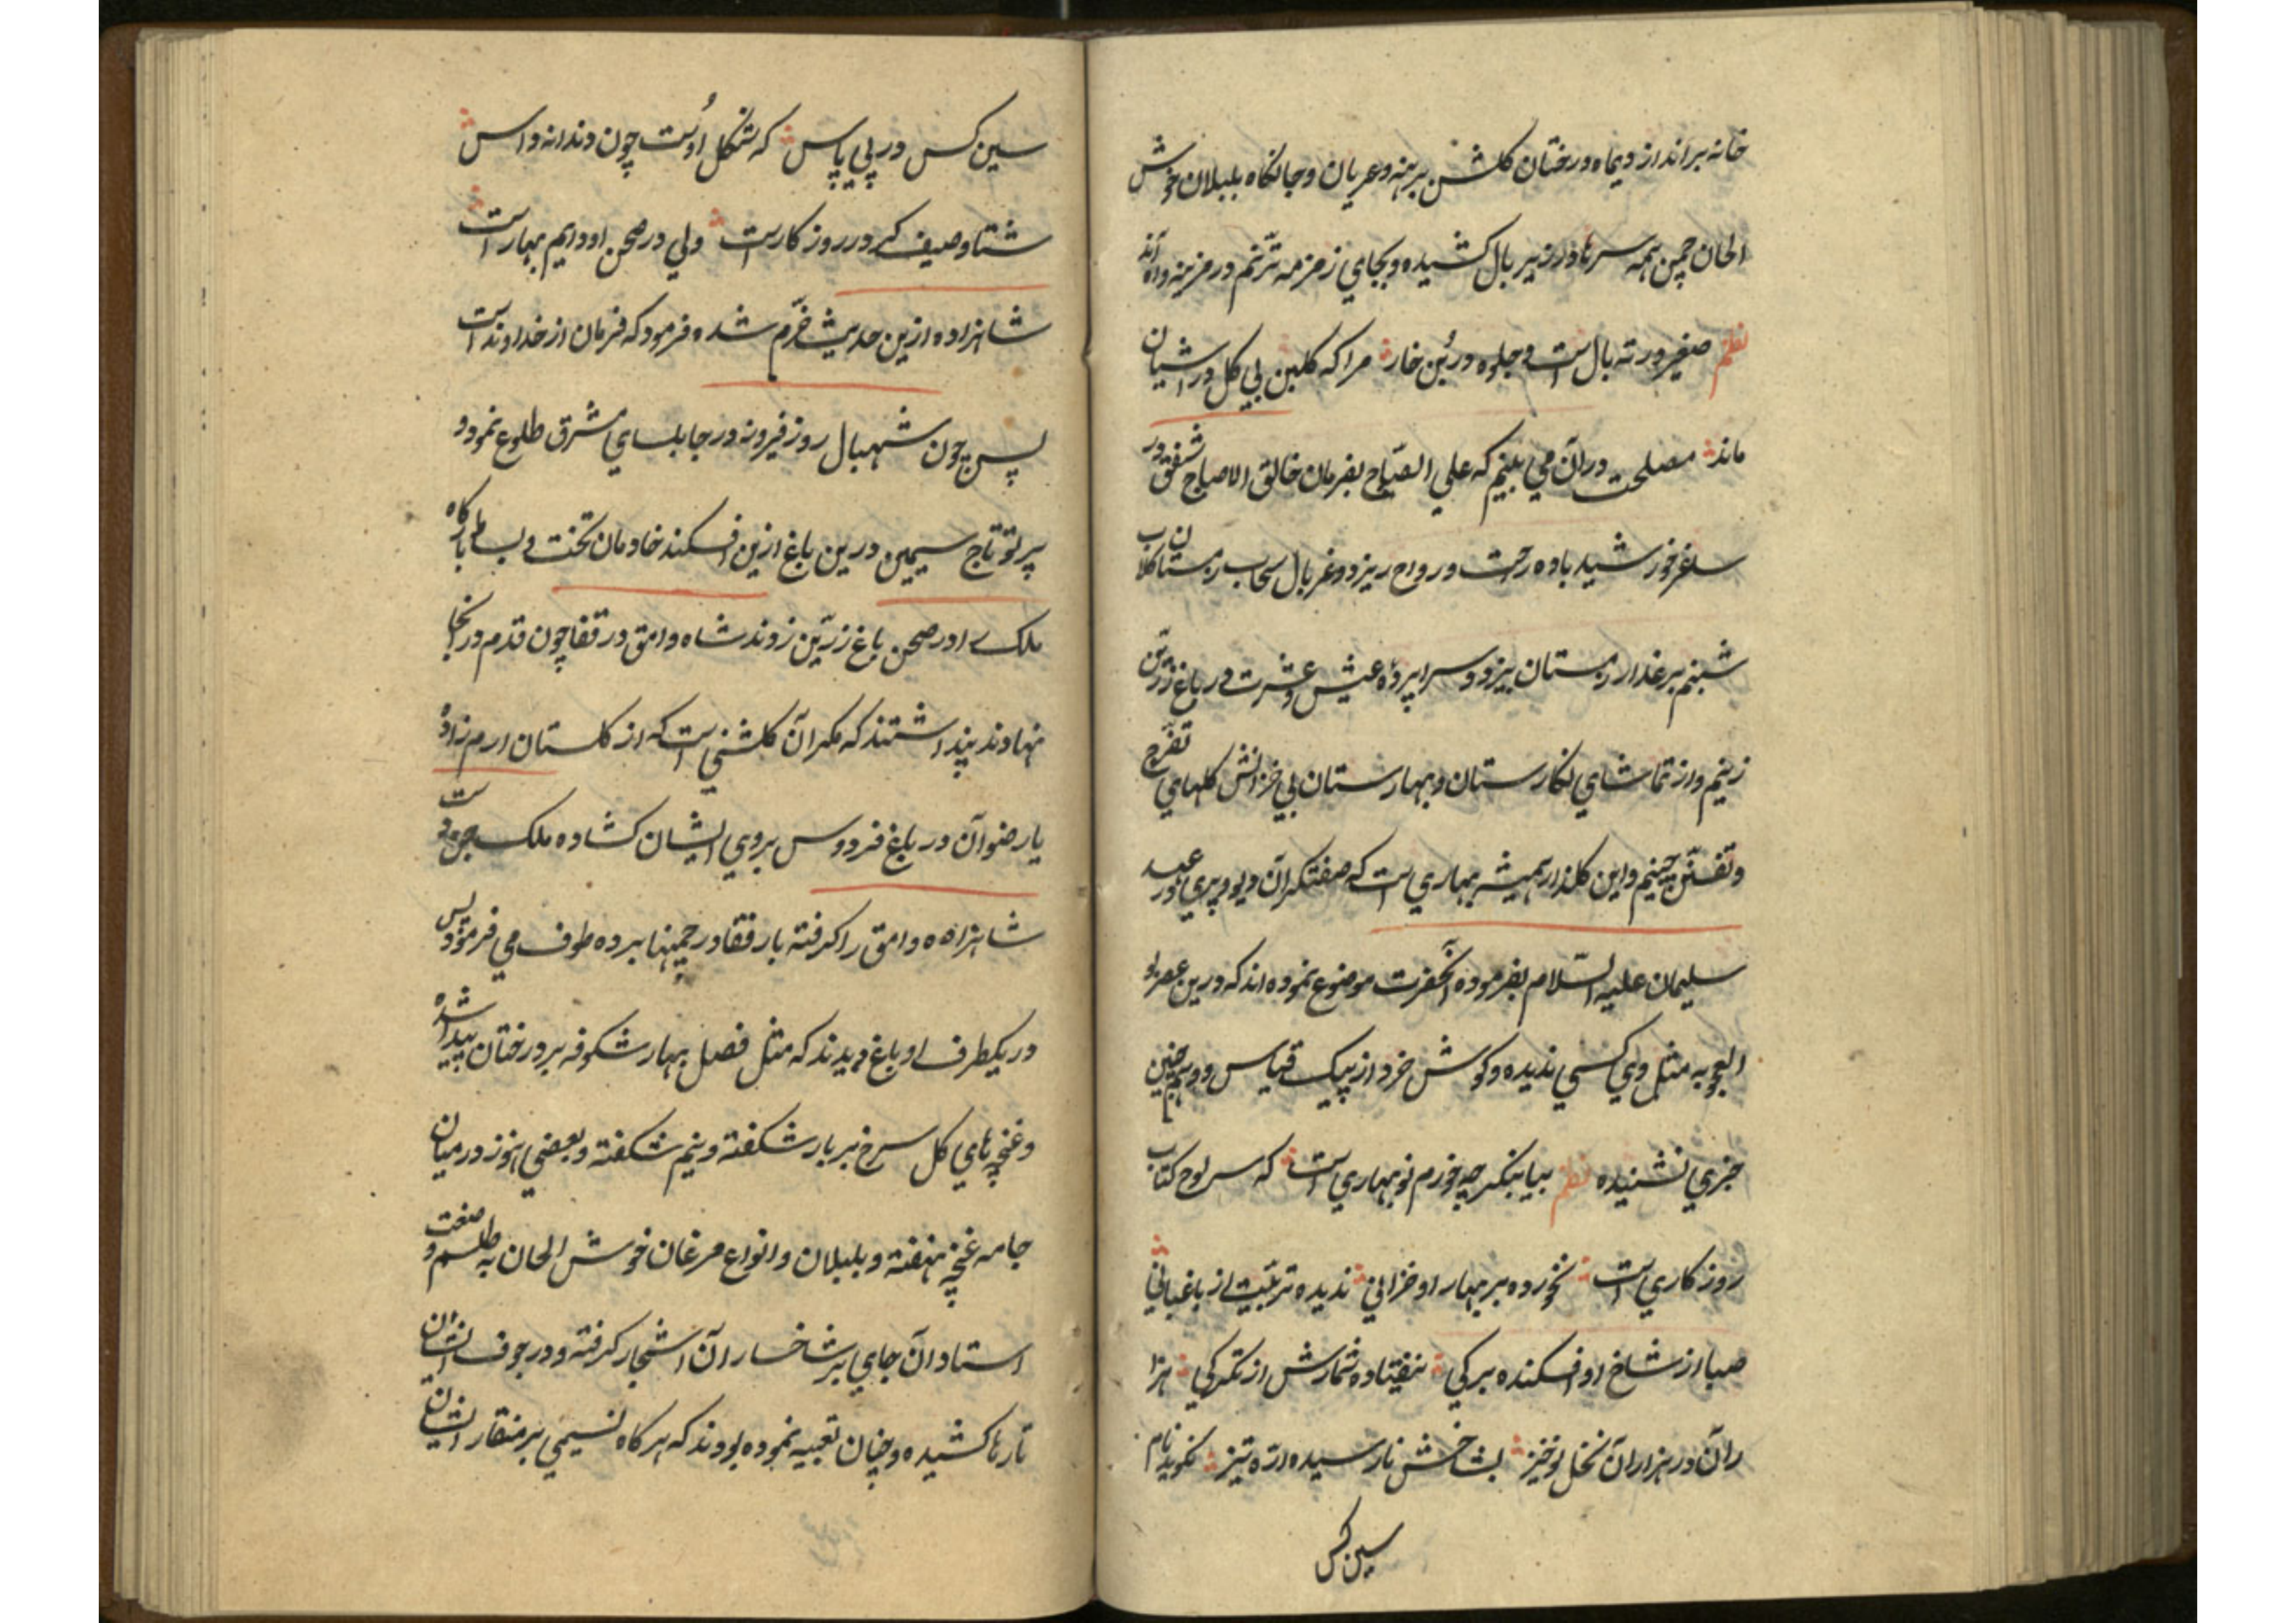 خانه برانداز دیماه درختان کلشن برهنه و عریان و جانکاه بلبلان خوش
الحان چمن همه سرها در زیر بال کشیده و بجای زمزمه ترنم در
نظم صفیر در ته بال است و جلوه در بن خار مرا که کلبن بی کل در آشیان
ماند مصلحت در آن می بینم که علی الصباح بفرمان خالق الاصباح شفق در
ساغر خورشید باده رحمت و رواح ریزد و غربال سحاب
شبنم بر عذار بیزد و سراپرده عیش و عشرت در باغ زرین
زینم و از تماشای نکارستان و بهارستان بی خزانش کلهای تفرج
و تفنن چینم و این کلزار همیشه بهاری است که صفتکران دیو و پری در عهد
سلیمان علیه السلام بفرموده آنحضرت موضوع نموده اند که درین عصر
العجوبه مثل وی کسی ندیده و کوش خرد از پیک قیاس و وهم چنین
خبری نشنیده نظم بیا بنکر چه خرم نوبهاری است که سر لوح کتاب
روزکاری است نخورده بر بهار او خزانی ندیده تربیت از باغبانی
صبا از شاخ او افکنده برکی نیفتاده ثمارش از تکرکی هزا
ران در هزاران نخل نوخیز بشاخش نارسیده اره تیز نکوید نام
سین کس
سین کس در پی پاس که شکل اوست چون دندانه داس
شتا و صیف کر در روزکار است ولی در صحن او دایم بهار است
شاهزاده ازین حدیث خرم شد و فرمود که فرمان از خداوند است
پس چون شهبال روز فیروزه در جابلسای مشرق طلوع نمود و
پرتو تاج سیمین درین باغ ازین افکند خادمان تخت و بساط بارکاه
ملک را در صحن باغ زرین زوند شاه وامق در قفا چون قدم در آنجا
نهادند پنداشتند که مکر آن کلشنی است که از کلستان ارم زاده
یا رضوان در باغ فردوس بروی ایشان کشاده ملک دست
شاهزاده وامق را کرفته با رفقا در چمنها برده طوف می فرمود پس
در یکطرف او باغ دیدند که مثل فصل بهار شکوفه بر درختان پیدا شده
و غنچه های کل سرخ بر بار شکفته و نیم شکفته و بعضی هنوز در میان
جامه غنچه نهفته و بلبلان و انواع مرغان خوش الحان به طلسم و صنعت
استادان جای بر شاخسار آن اشجار کرفته و در جوف ایشان
تارها کشیده و چنان تعبیه نموده بودند که هرکاه نسیمی بر منقار ایشان